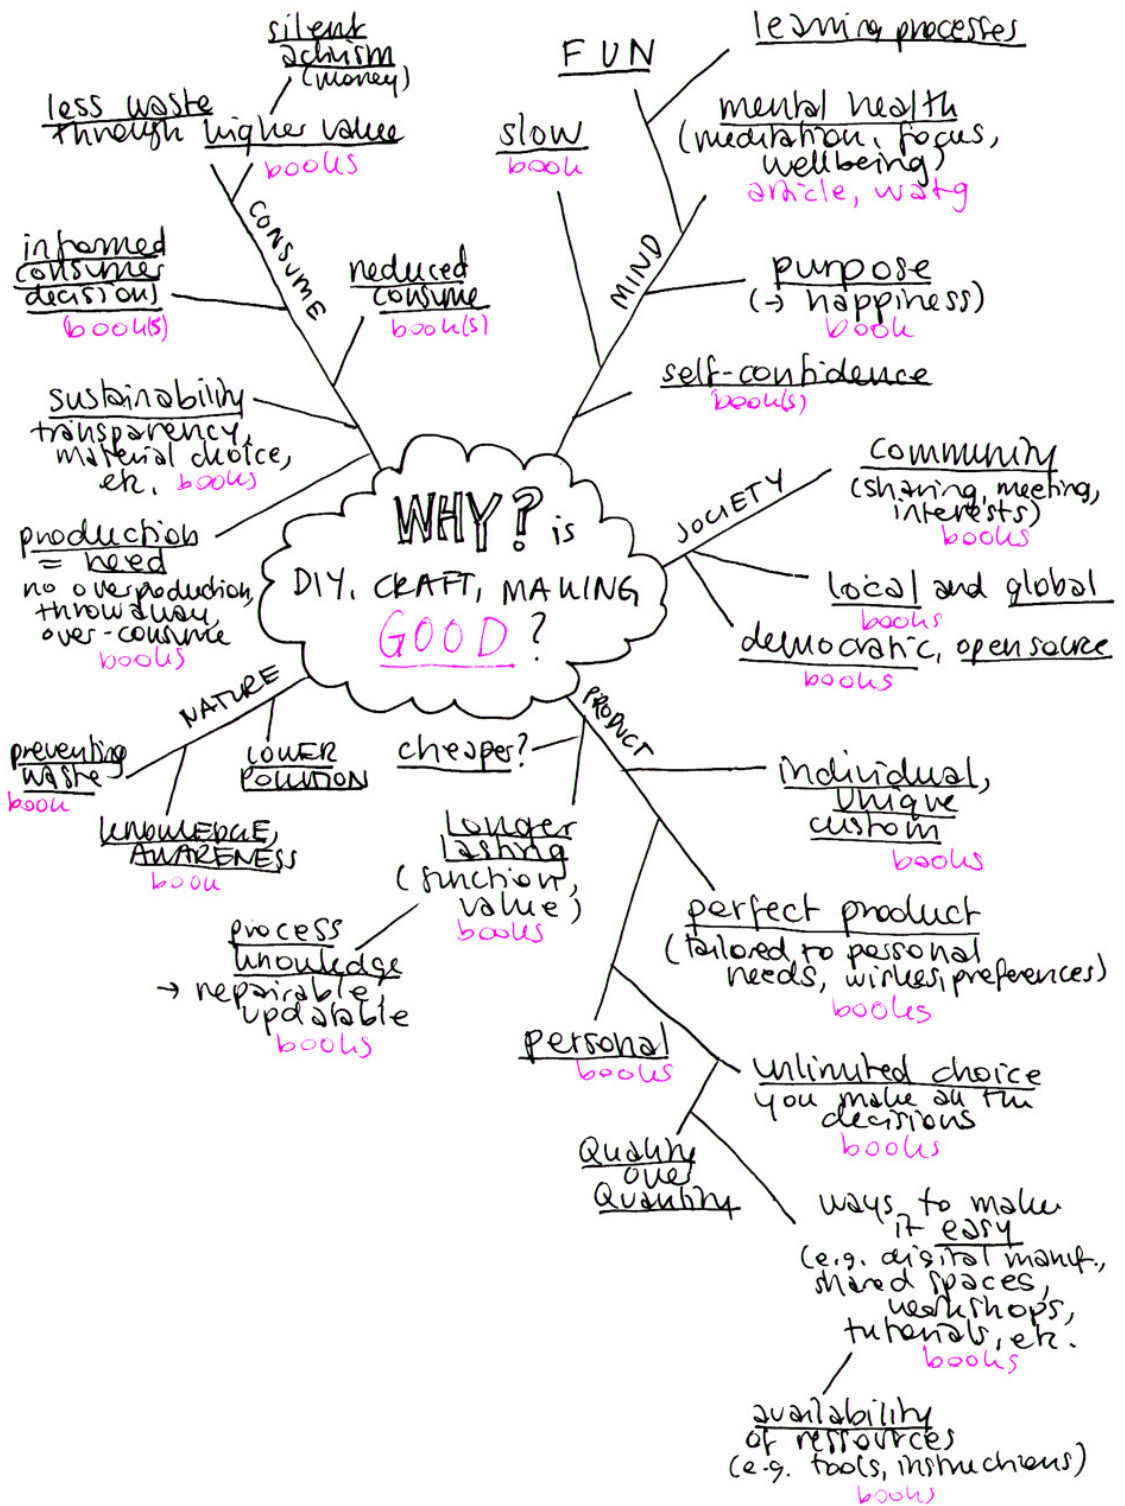 silent
activism
(money)
less waste
through higher value
books
CONSUME
informed
consumer
decisions
(book(s)
reduced
consume
book(s)
sustainability
transparency,
material choice,
etc. books
production
= need
no overproduction,
throwaway,
over-consume
books
FUN
learning processes
slow
book
mental health
(meditation, focus,
wellbeing)
article, watg
MIND
purpose
(→ happiness)
book
self-confidence
book(s)
WHY? is
DIY, CRAFT, MAKING
GOOD?
SOCIETY
community
(sharing, meeting,
interests)
books
local and global
books
democratic, opensource
books
NATURE
preventing
waste
book
LOWER
POLLUTION
KNOWLEDGE,
AWARENESS
book
PRODUCT
cheaper?
Longer
lasting
(function,
value)
books
process
knowledge
→ repairable,
updatable
books
individual,
unique
custom
books
perfect product
(tailored to personal
needs, wishes, preferences)
books
personal
books
unlimited choice
you make all the
decisions
books
Quality
over
Quantity
ways to make
it easy
(e.g. digital manuf.,
shared spaces,
workshops,
tutorials, etc.
books
availability
of ressources
(e.g. tools, instructions)
books